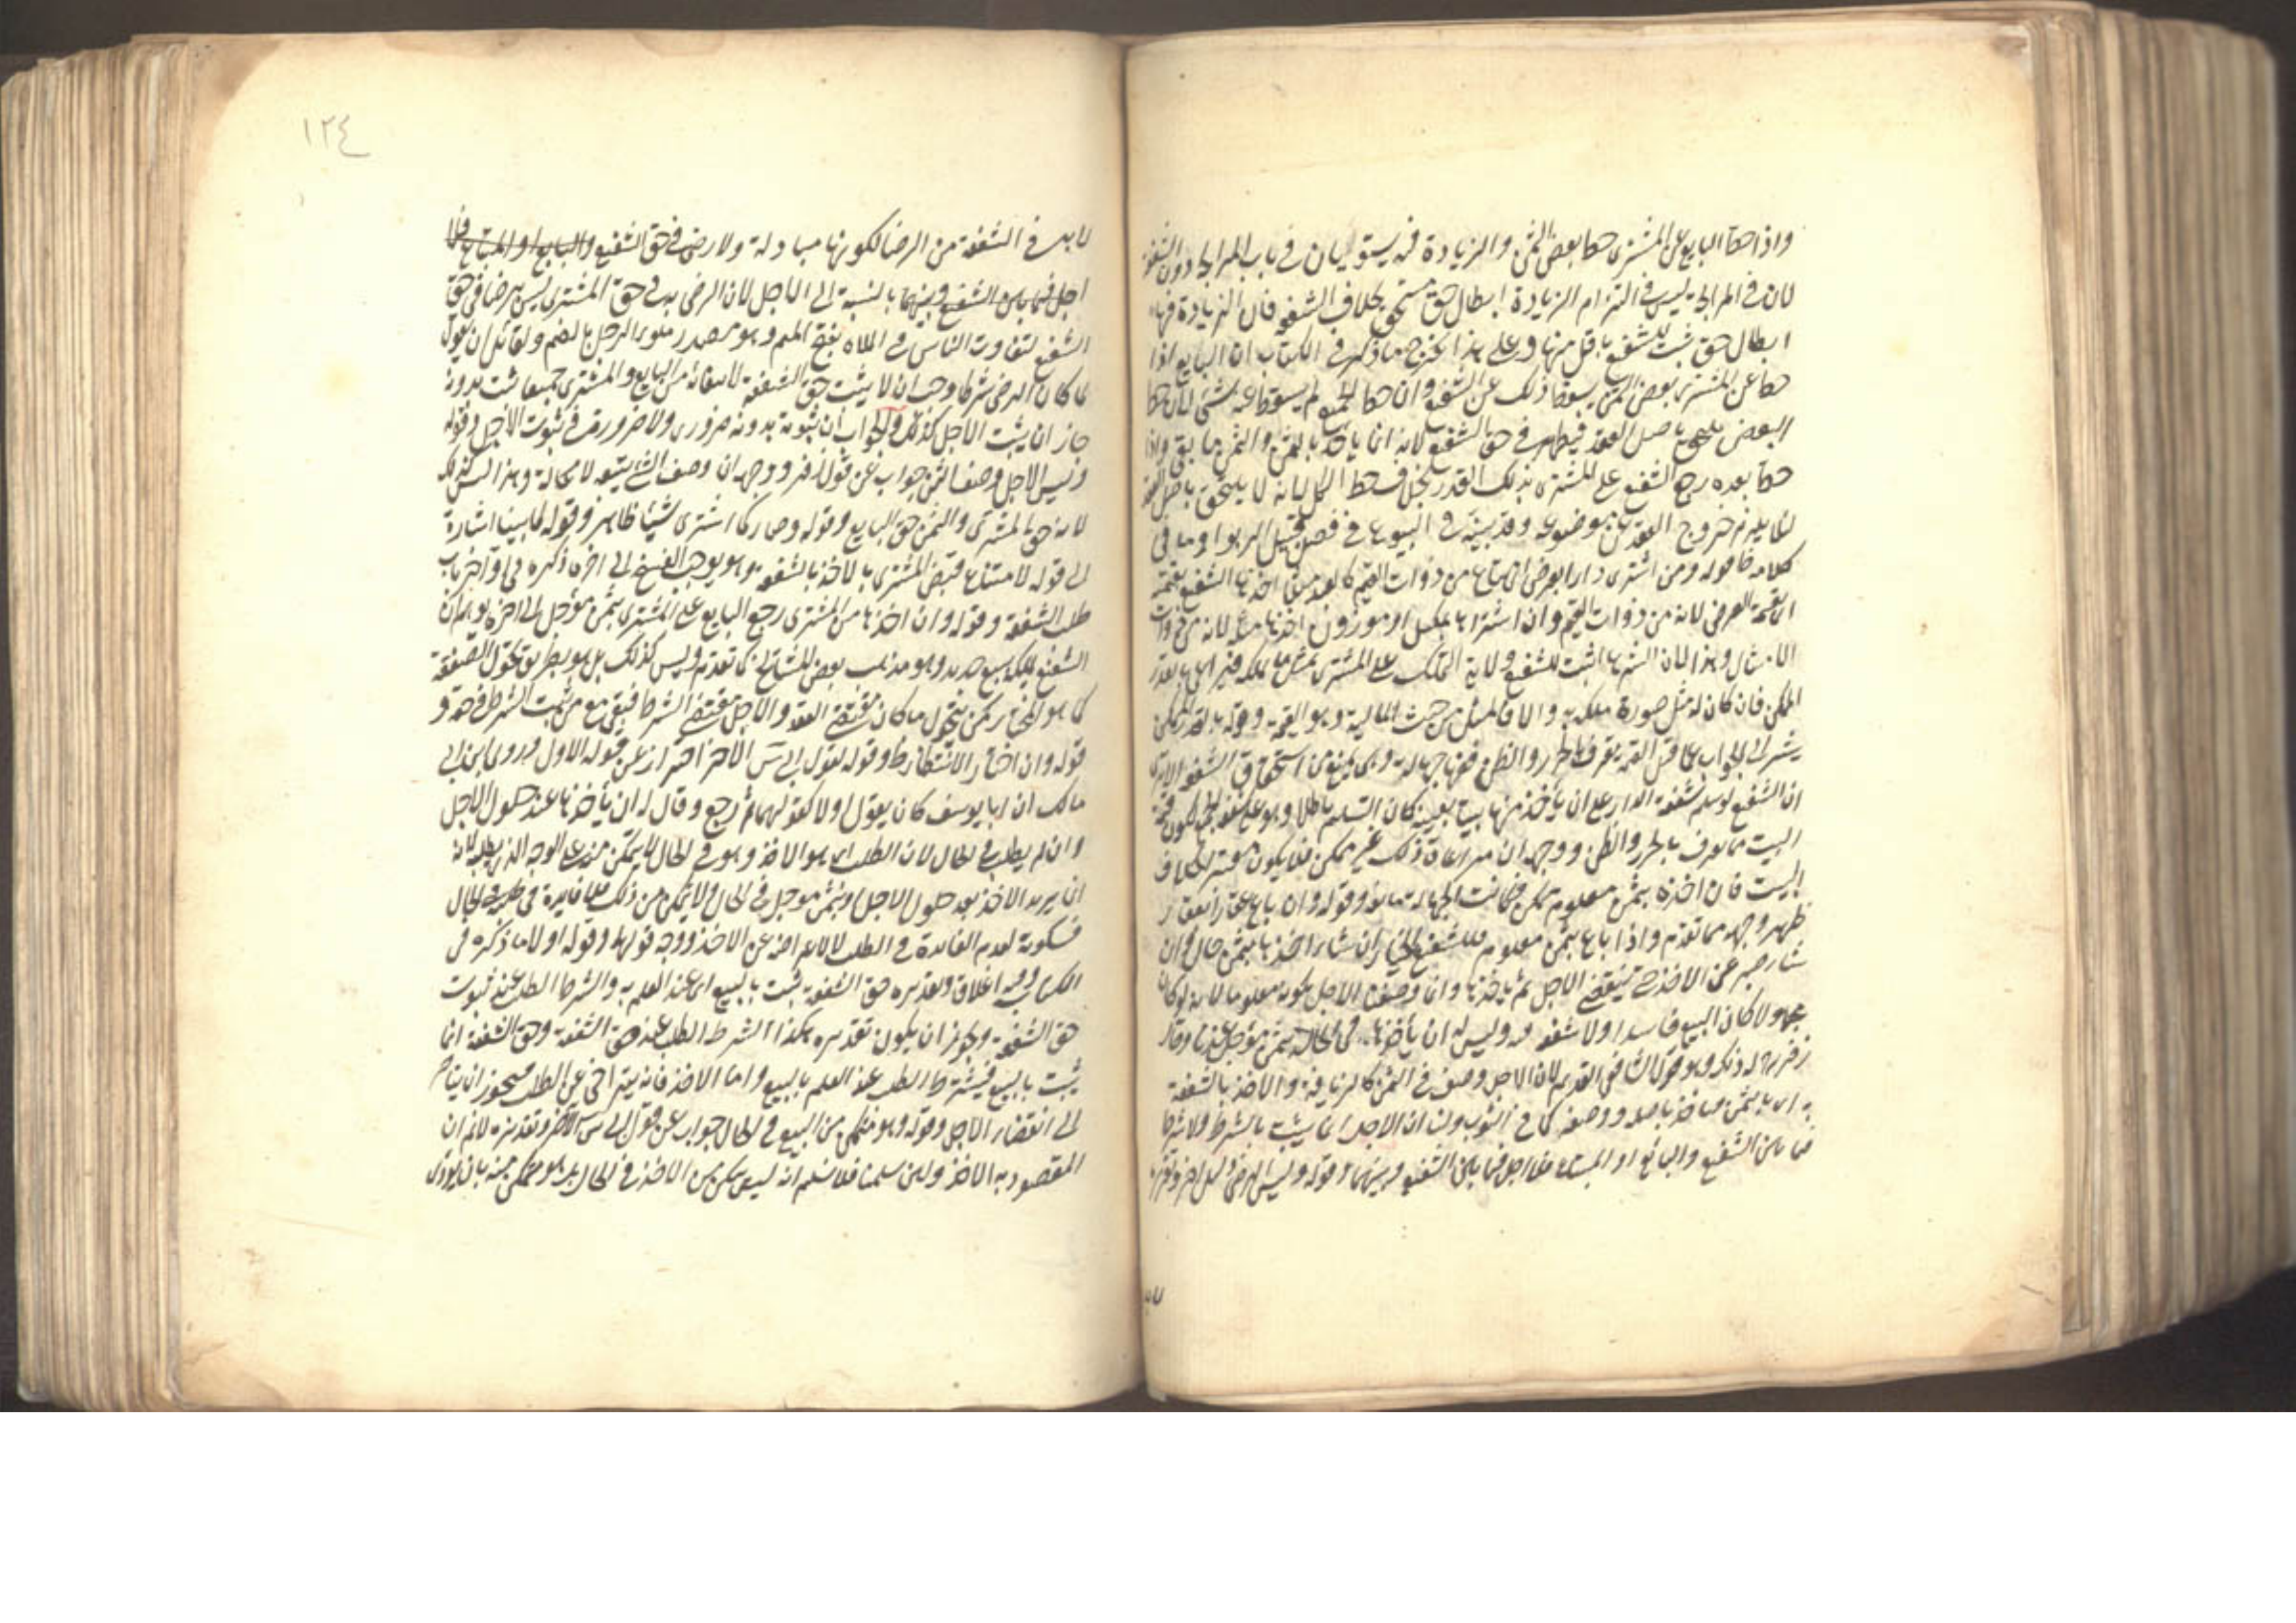 واذا حط البايع عن المشترى حط بعض الثمن والزيادة فيه يستويان فى باب المرابحة دون الشفعة
لان فى المرابحة ليس فى التزام الزيادة ابطال حق مستحق بخلاف الشفعة فان الزيادة فيها
ابطال حق ثبت للشفيع باقل منها وعلى هذا يخرج ما ذكر فى الكتاب ان البايع اذا
حط عن المشترى بعض الثمن يسقط ذلك عن الشفيع وان حط الجميع لم يسقط عنه شئ لان حط
البعض يلتحق باصل العقد فيظهر فى حق الشفيع لانه انما يأخذ بالثمن والثمن ما بقى واذا
حط بعده رجع الشفيع على المشترى بذلك القدر بخلاف حط الكل لانه لا يلتحق باصل العقد
لئلا يلزم خروج العقد عن موضوعه وقد بيناه فى البيوع فى فصل قبيل الربوا وما فى
كلامه ظ قوله ومن اشترى دارا بعرض اى بمتاع من ذوات القيم كالعبد مثلا اخذها الشفيع بقيمته
اى بقيمة العرض لانه من ذوات القيم وان اشتراها بمكيل او موزون اخذها بمثله لانه من ذوات
الامثال وهذا لان الشرع اثبت للشفيع ولاية التملك على المشترى بمثل ما ملكه فيراعى بالقدر
الممكن فان كان له مثل صورة ملكه به والا فالمثل من حيث المالية وهو القيمة وقوله بالقدر الممكن
يشير الى الجواب عما قيل القيمة يعرف بالحزر والظن ففيها جهالة وهى يمنع من استحقاق الشفعة الا يرى
ان الشفيع لو سلم شفعة الدار على ان يأخذ منها بيتا بعينه كان التسليم باطلا وهو على شفعة الجميع لكون قيمة
البيت مما يعرف بالحزر والظن ووجهه ان مراعاة ذلك غير ممكن فلا يكون معتبرا بخلاف
البيت فان اخذه بثمن معلوم ممكن فكانت الجهالة مانعة وقوله وان باع عقارا بعقار
ظهر وجهه مما تقدم واذا باع بثمن معلوم فللشفيع الخيار ان شاء اخذها بثمن حال وان
شاء صبر عن الاخذ حتى ينقضى الاجل ثم يأخذها وانما وصف الاجل بكونه معلوما لانه لو كان
مجهولا كان البيع فاسدا ولا شفعة فيه وليس له ان يأخذها فى الحال بثمن مؤجل عندنا وقال
زفر رح له ذلك وهو قول الشافعى القديم لان الاجل وصف فى الثمن كالزيافة والاخذ بالشفعة
به اى بالثمن فيأخذ باصله ووصفه كما فى الزيوف ولنا ان الاجل انما يثبت بالشرط ولا شرط
فيما بين الشفيع والبائع او المبتاع فلا اجل فيما بين الشفيع وبينهما وقوله وليس الرضى
لابد فى الشفعة من الرضا لكونها مبادلة ولا رضى فى حق الشفيع والبايع او المبتاع فلا
اجل فيما بين الشفيع وبينهما بالنسبة الى الاجل لان الرضى به فى حق المشترى ليس برضا فى حق
الشفيع لتفاوت الناس فى الملاءة بفتح الميم وهو مصدر ملوء الرجل بالضم ولقائل ان يقول
لما كان الرضى شرطا وجب ان لا يثبت حق الشفعة لانتفائه من البايع والمشترى جميعا ثبت بدونه
جاز ان يثبت الاجل كذلك والجواب ان ثبوته بدونه ضرورى ولا ضرورة فى ثبوت الاجل وقوله
وليس الاجل وصف الثمن جواب عن قول زفر ووجهه ان وصف الشئ يتبعه لا محالة وهذا ليس كذلك
لانه حق المشترى والثمن حق البايع وقوله وصار كما اشترى شيئا ظاهر وقوله لما بينا اشارة
الى قوله لامتناع قبض المشترى بالاخذ بالشفعة وهو يوجب الفسخ الى اخره ذكره فى اواخر باب
طلب الشفعة وقوله وان اخذها من المشترى رجع البايع على المشترى بثمن مؤجل الى اخره يوهم ان
الشفيع يملك ببيع جديد وهو مذهب بعض المشايخ كما تقدم وليس كذلك بل هو بطريق تحول الصفقة
كما هو المختار لكن يتحول ما كان مقتضى العقد والاجل مقتضى الشرط فيبقى مع من ثبت الشرط فى حقه و
قوله وان اختار الانتظار ظ وقوله لقول ابى يوسف الاخر احتراز عن قوله الاول وروى ابن ابى
مالك ان ابا يوسف كان يقول اولا كقولهما ثم رجع وقال له ان يأخذها عند حلول الاجل
وان لم يطلب فى الحال لان الطلب انما هو الاخذ وهو فى الحال لا يتمكن منه على الوجه الذى يطلبه لانه
انما يريد الاخذ بعد حلول الاجل او بثمن مؤجل فى الحال ولا يتمكن من ذلك فلا فايدة فى طلبه فى الحال
فسكوته لعدم الفائدة فى الطلب لا لاعراضه عن الاخذ ووجه قولهما وقوله اولا ما ذكره فى
الكتاب وفيه اغلاق وتقديره حق الشفعة يثبت بالبيع اى عند العلم به والشرط الطلب عند ثبوت
حق الشفعة ويجوز ان يكون تقديره هكذا الشرط الطلب عند حق الشفعة وحق الشفعة انما
يثبت بالبيع فيشترط الطلب عند العلم بالبيع واما الاخذ فانه يتراخى عن الطلب فيجوز ان يتأخر
الى انقضاء الاجل وقوله وهو متمكن من البيع فى الحال جواب عن قول ابى يوسف الاخر وتقديره لانم ان
المقصود به الاخذ ولئن سلمنا فلا نسلم انه ليس بمتمكن من الاخذ فى الحال بل هو متمكن منه بان يؤدى
١٢٤